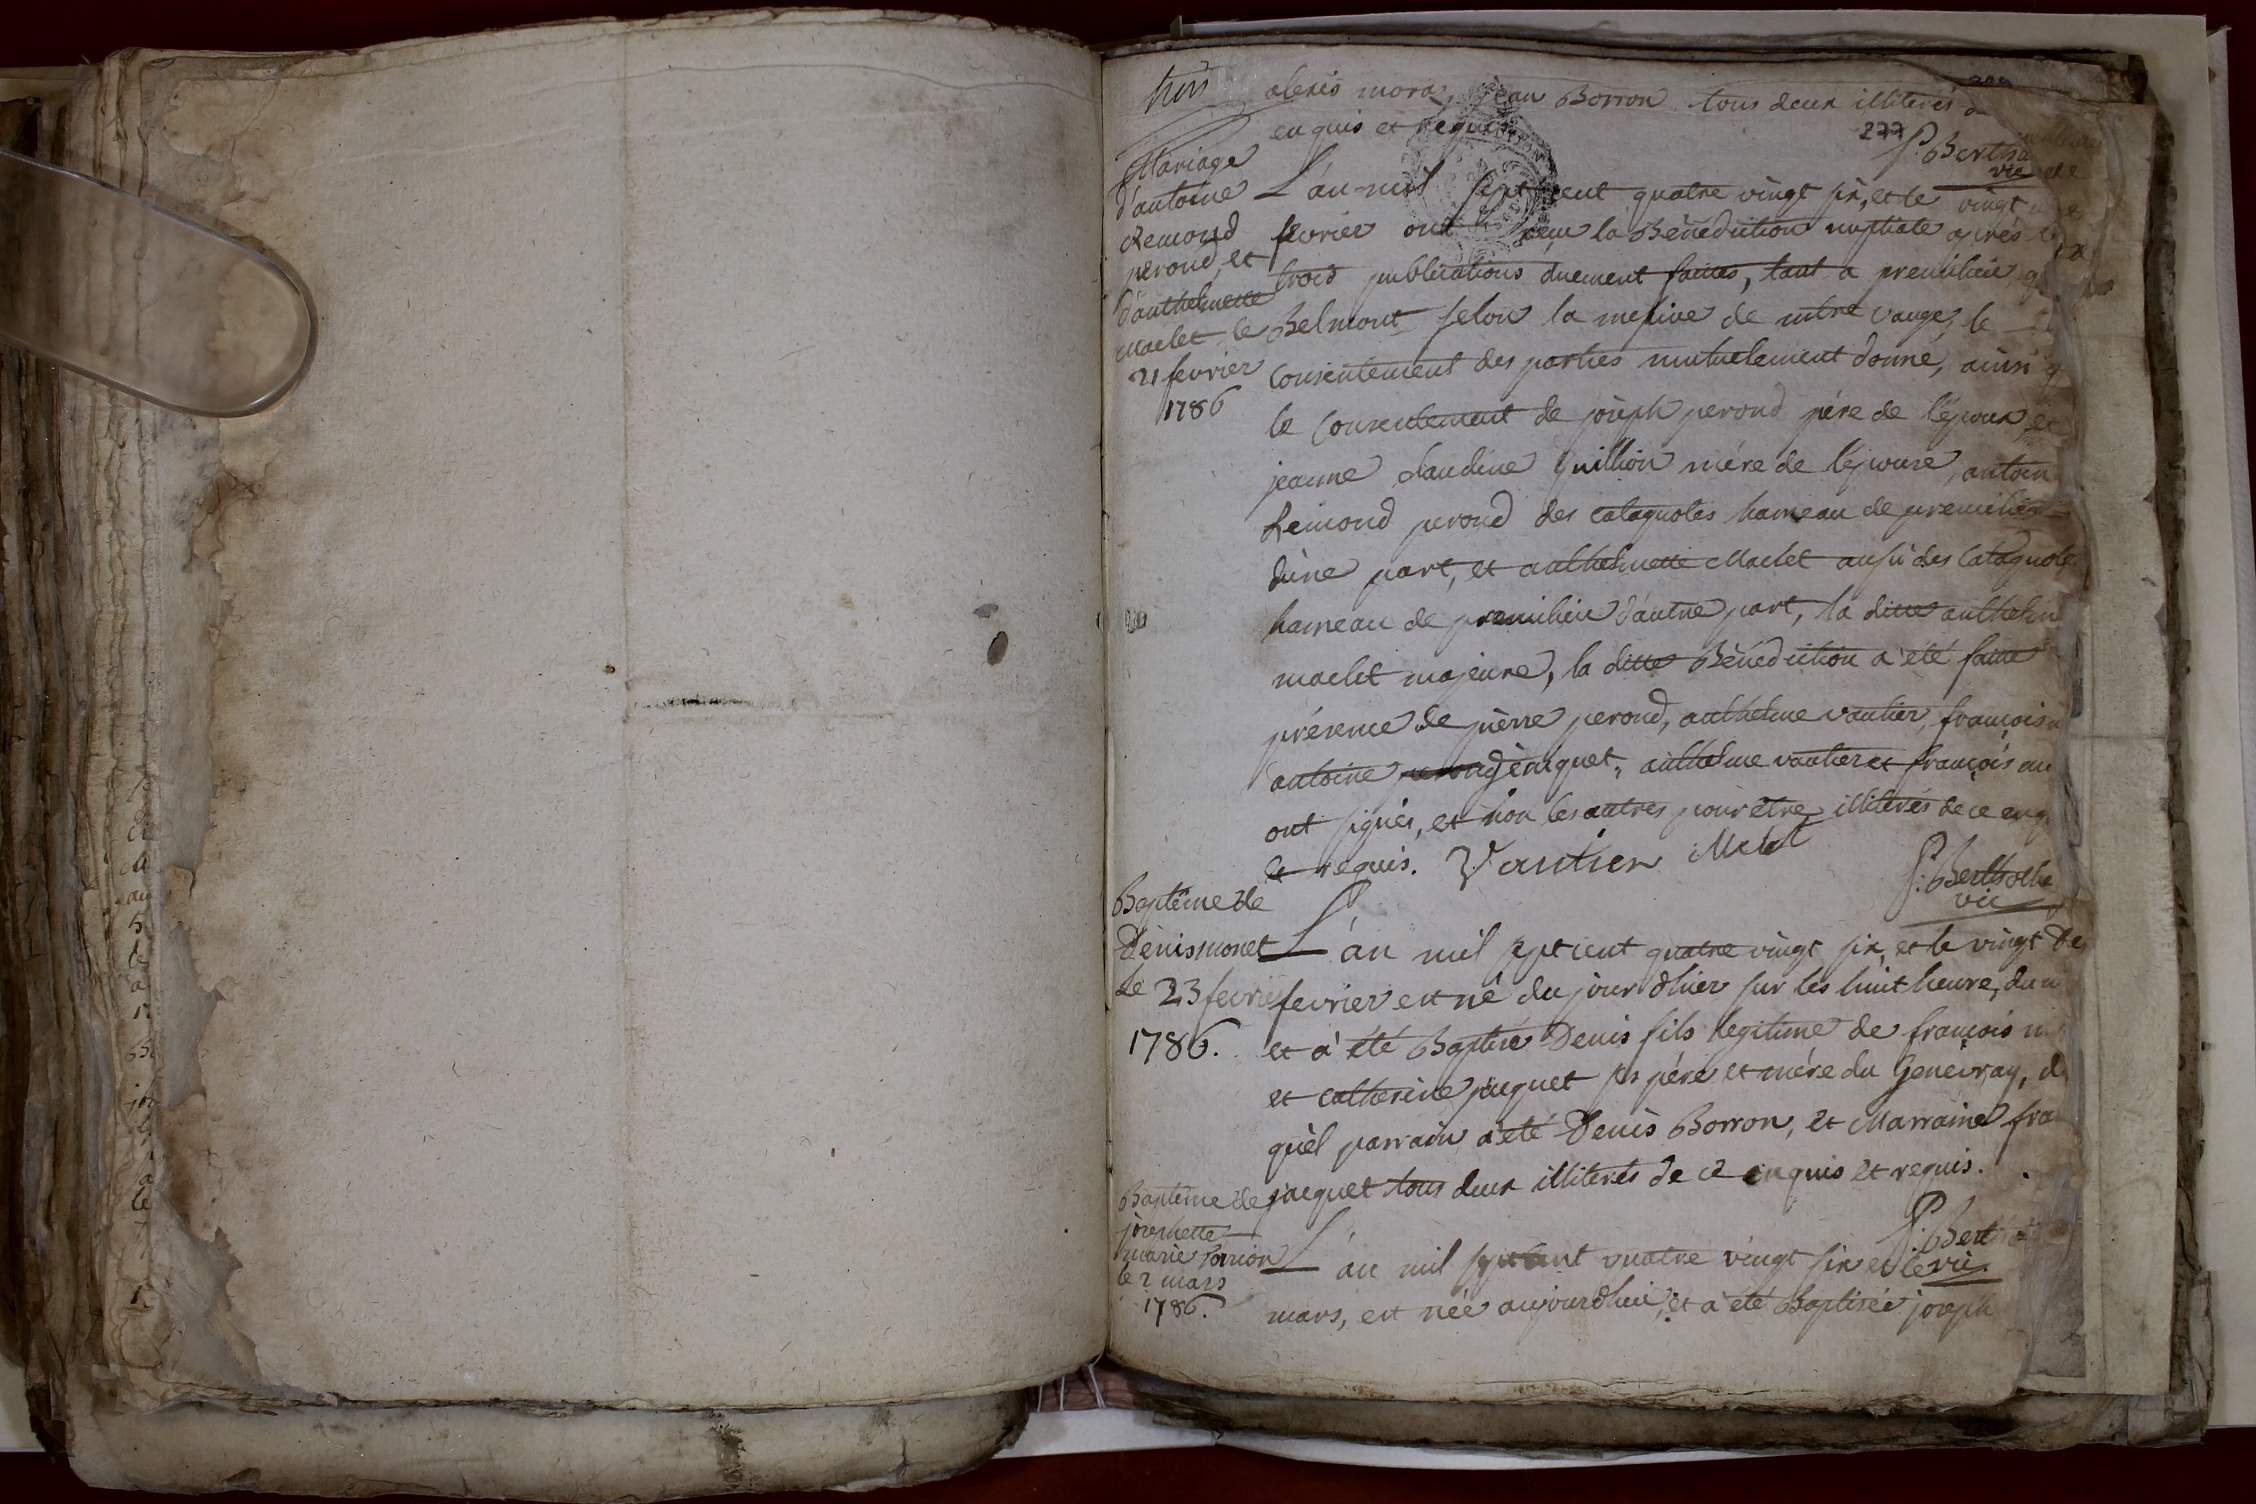 trois
alexis moras, jean Borron tous deux illiterés
enquis et requis
277
P. Bertho
vic
Mariage
d'antoine
Remond
perond, et
d'anthelmette
Maclet le
21 fevrier
1786
L'an mil sept cent quatre vingt six, et le vingt
fevrier ont reçu la Bénédiction nuptiale après
trois publications duement faites, tant a premilieu
Belmont selon la mesure de nôtre vauge, le
consentement des parties mutuelement donné, ainsi q
le consentement de joseph perond pére de l'époux et
jeanne Claudine Guillion mére de l'epouse, antoin
Remond perond des catagnoles hameau de premilieu
d'une part, et anthelmette Maclet aussi des Catagnole
hameau de premilieu d'autre part, la ditte anthelm
maclet majeure, la ditte Bénédiction a été faitte
présence de pierre perond, anthelme vautier, françois
antoine jacquet, anthelme vautier et françois
ont signés, et non les autres pour être illiterés de ce enq
et requis. Vautier
P. Berthol
vic
Baptême de
Denis monet
Le 23 fevrier
1786.
L'an mil sept cent quatre vingt six, et le vingt
fevrier est né du jour d'hier sur les huit heure, du
et a été Baptisé Denis fils legitime de françois
et catherine jacquet ses pére et mére du Genevray, d
quel parrain a été Denis Borron, et Marraine fra
jacquet tous deux illiterés de ce enquis et requis.
P. Bert
vic.
Baptême de
josephette
marie Borrion
le 2 mars
1786.
L'an mil sept cent quatre vingt six et le
mars, est née aujourdhui, et a été Baptisée joseph